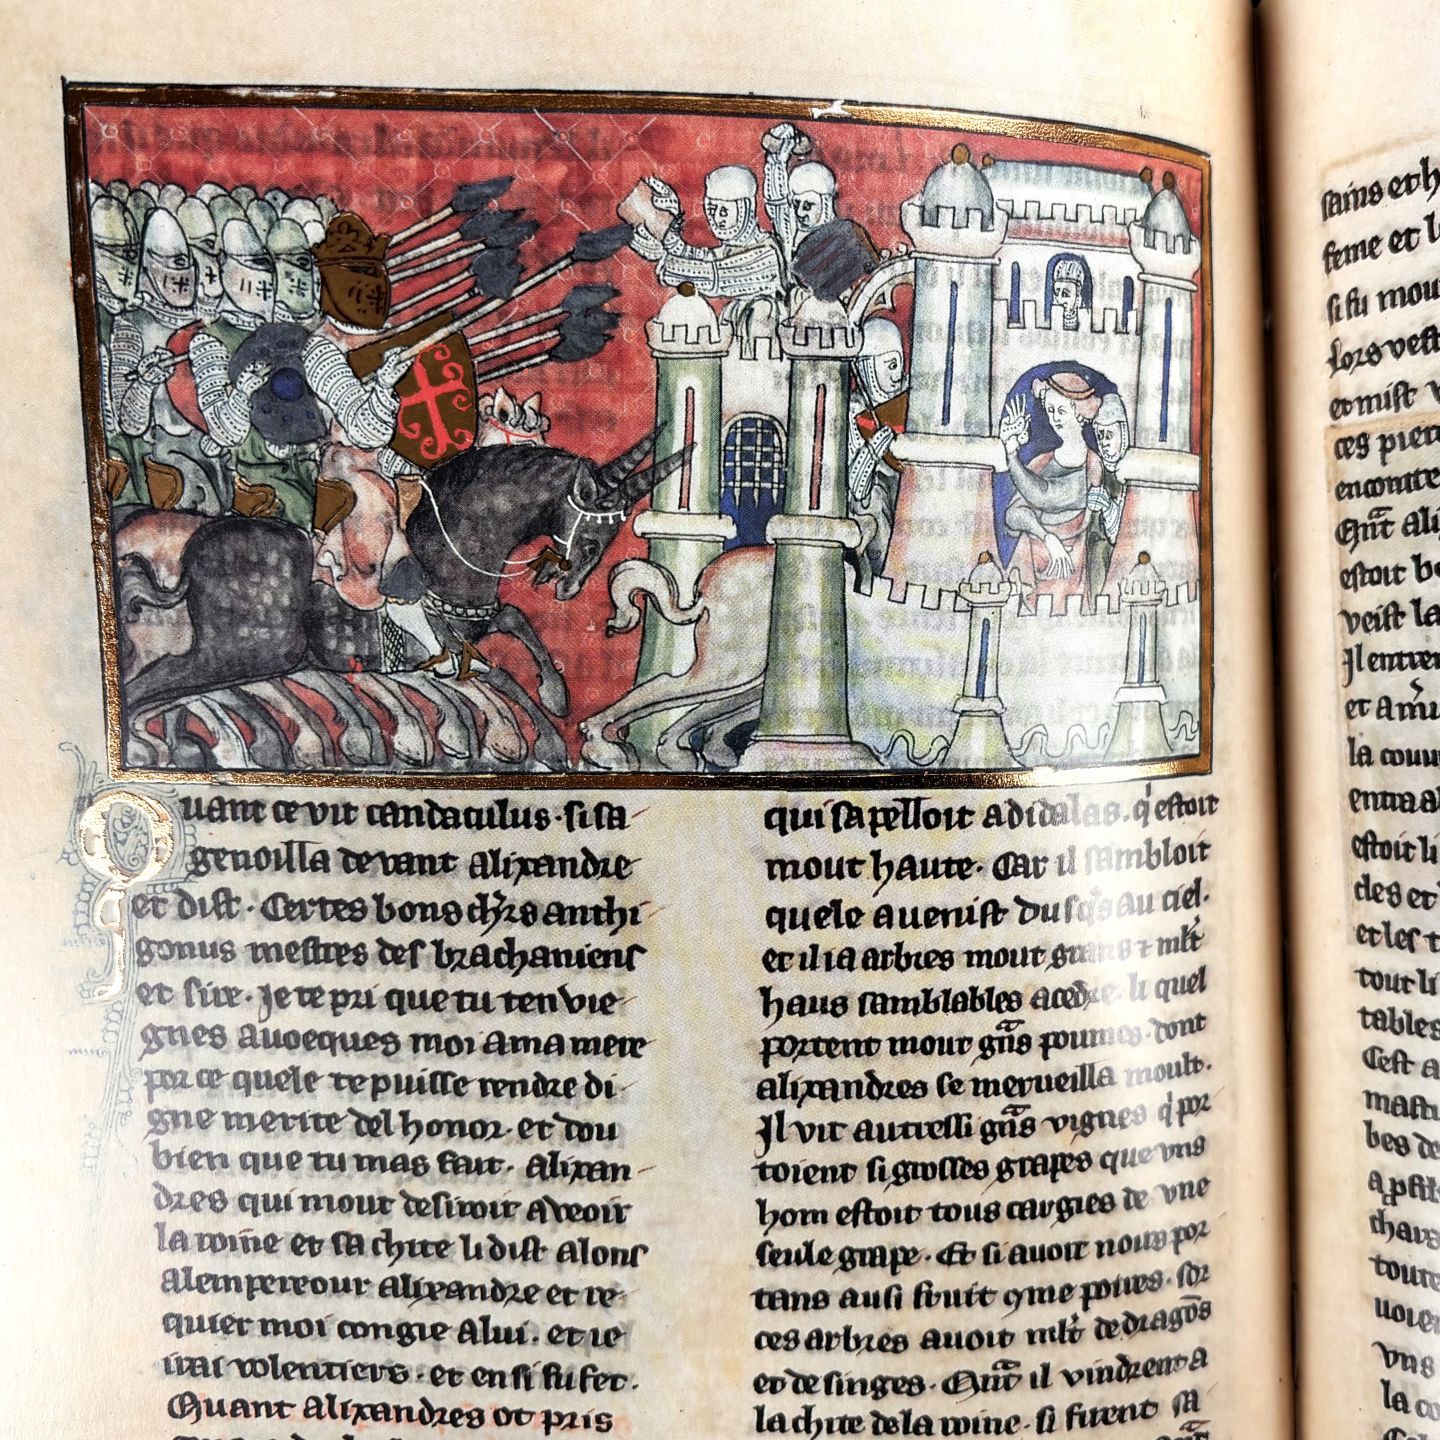 Quant ce vit candaculus · si sa
genoilla devant alixandre
et dist · Certes bons chr̄s anthi
gonus mestres des brachaniens
et sire · Je te pri que tu ten vie
gnes avoeques moi a ma mere
por ce quele te puisse rendre di
gne merite del honor · et dou
bien que tu mas fait · alixan
dres qui mout desiroit a veoir
la roine et sa chite li dist alons
alempereour alixandre et re
quier moi congie a lui · et ie
irai volentiers · et ensi fu fet ·
Quant alixandres ot pris
qui sapelloit adidalas · q̍ estoit
mout haute · Car il sambloit
quele avenist dusq̍s au ciel ·
et il i a arbres mout grans ⁊ ml̄t
haus samblables a cedre · li quel
portent mout gn̄s poumes · dont
alixandres se merveilla moult ·
Il vit autressi gn̄s vignes q̍ por
toient si grosses grapes que vns
hom estoit tous cargies de vne
seule grape · Et si avoit nous por
tans ausi fruit
ces arbres avoit ml̄t de dragōs
et de singes · Qn̄t il vindrent a
la chite de la roine · si furent sa
sains et
feme et
si fu mou
Lors vest
et mist
ces pier
encontre
Qn̄t ali
estoit
veist la
Il entrer
et
la
entra
estoit li
cles et
et les
tout li
tables
Cest a
bes de
toute
vns
la